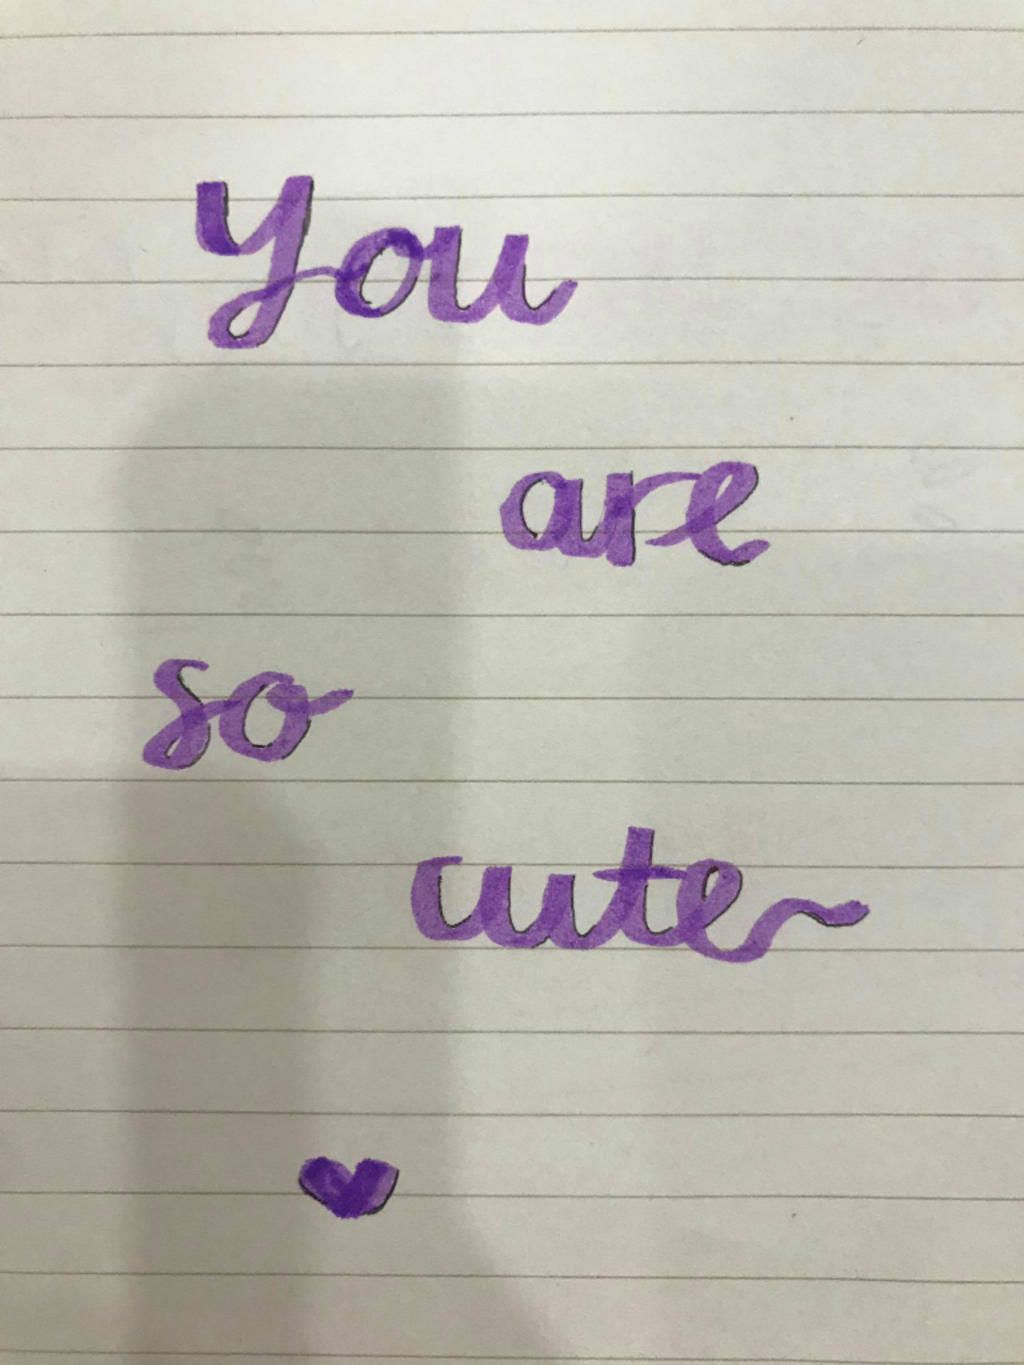 You
are
so
cute